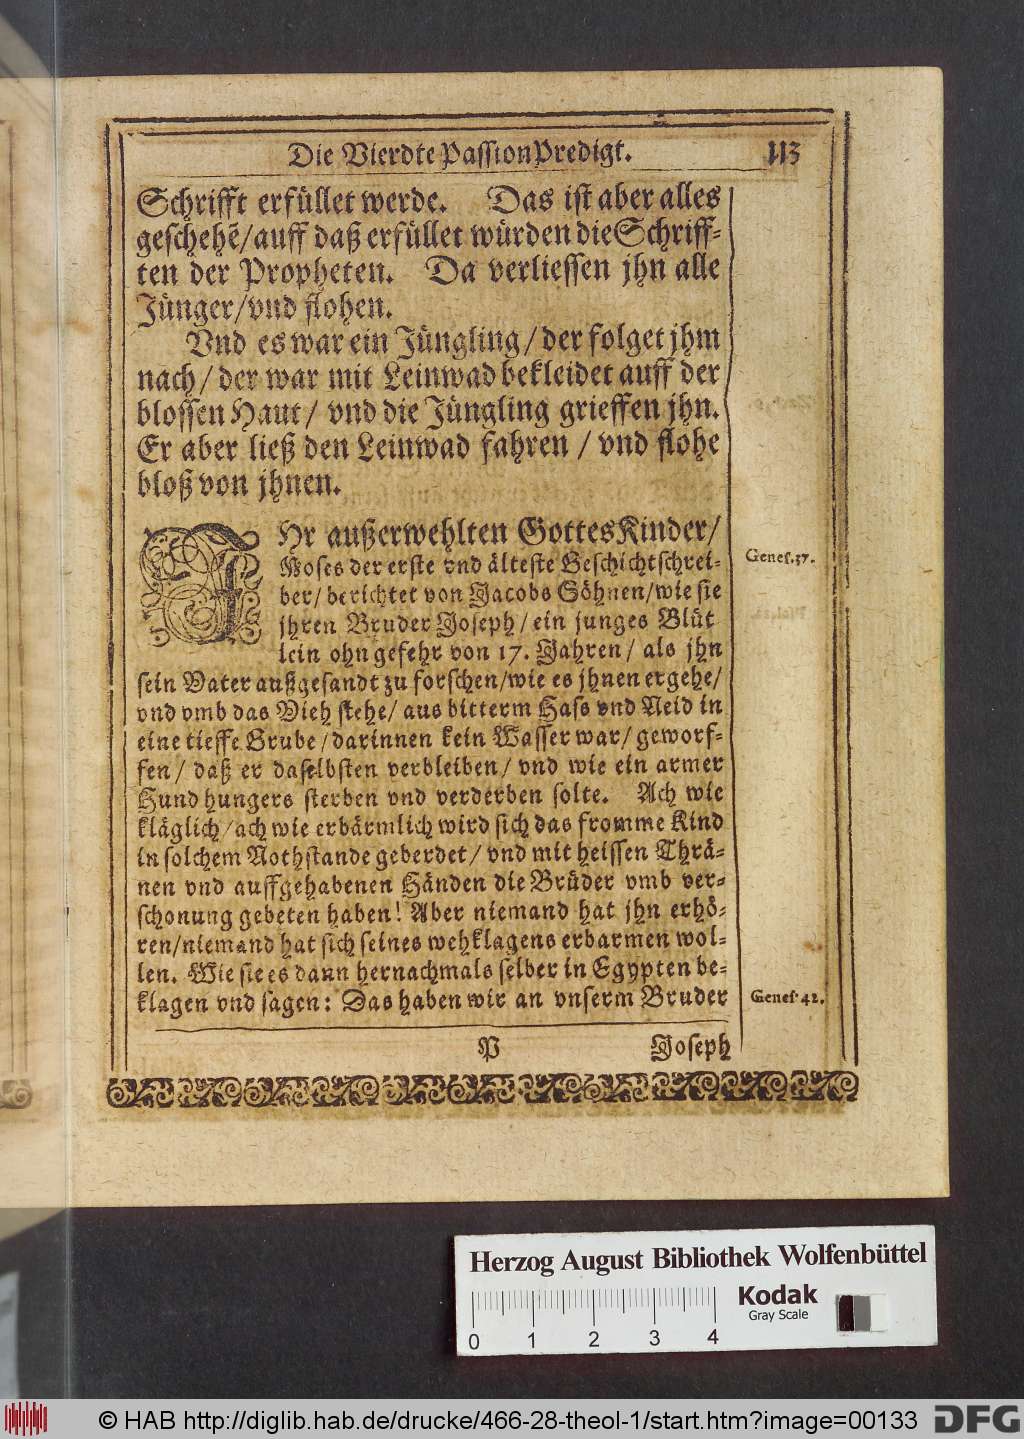 Die Vierdte PassionPredigt. 113
Schrifft erfüllet werde. Das ist aber alles
geschehẽ/auff daß erfüllet würden die Schriff-
ten der Propheten. Da verliessen jhn alle
Jünger/vnd flohen.
Vnd es war ein Jüngling/der folget jhm
nach/der war mit Leinwad bekleidet auff der
blossen Haut/ vnd die Jüngling grieffen jhn.
Er aber ließ den Leinwad fahren / vnd flohe
bloß von jhnen.
IHr außerwehlten GottesKinder/
Moses der erste vnd älteste Geschichtschrei-
ber/ berichtet von Jacobs Söhnen/wie sie
jhren Bruder Joseph/ein junges Blüt
lein ohngefehr von 17. Jahren/ als jhn
sein Vater außgesandt zu forschen/wie es jhnen ergehe/
vnd vmb das Vieh stehe/ aus bitterm Hass vnd Neid in
eine tieffe Grube/darinnen kein Wasser war/ geworf-
fen/ daß er daselbsten verbleiben/ vnd wie ein armer
Hund hungers sterben vnd verderben solte. Ach wie
kläglich/ach wie erbärmlich wird sich das fromme Kind
in solchem Nothstande geberdet/ vnd mit heissen Thrä-
nen vnd auffgehabenen Händen die Brüder vmb ver-
schonung gebeten haben! Aber niemand hat jhn erhö-
ren/niemand hat sich seines wehklagens erbarmen wol-
len. Wie sie es dann hernachmals selber in Egypten be-
klagen vnd sagen: Das haben wir an vnserm Bruder
P Joseph
Genes. 37.
Genes. 42.
Herzog August Bibliothek Wolfenbüttel
0 1 2 3 4
Kodak
Gray Scale
© HAB http://diglib.hab.de/drucke/466-28-theol-1/start.htm?image=00133
DFG